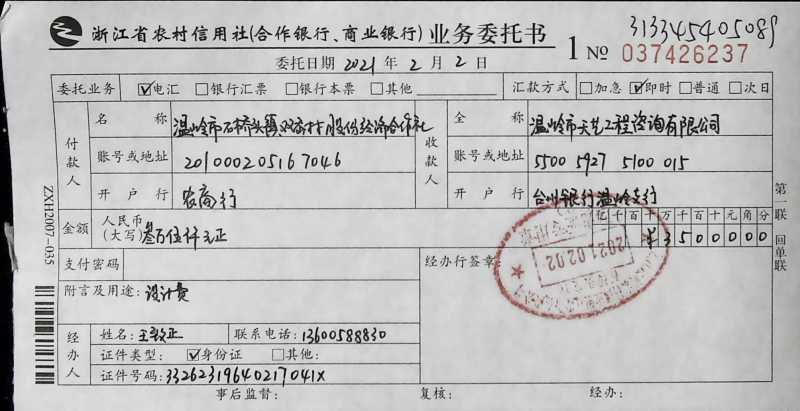 313345405089
浙江省农村信用社(合作银行、商业银行) 业务委托书 1 № 037426237
委托日期 2021 年 2 月 2 日
委托业务 ☑电汇 □银行汇票 □银行本票 □其他 汇款方式 □加急 ☑即时 □普通 □次日
付款人 名称 温岭市石桥头镇 村股份经济合作社 收款人 全称 温岭市天艺工程咨询有限公司
账号或地址 201000205167046 账号或地址 5500 5927 5100 015
开户行 农商行 开户行 台州银行温岭支行
金额 人民币(大写) 叁万伍仟元正 亿千百十万千百十元角分
¥3500000
支付密码 经办行签章:
2021.02.02
附言及用途: 设计费
经办人 姓名: 王 正 联系电话: 13600588830
证件类型: ☑身份证 □其他:
证件号码: 33262319640217041X
事后监督: 复核: 经办:
ZXH2007-035
第一联 回单联